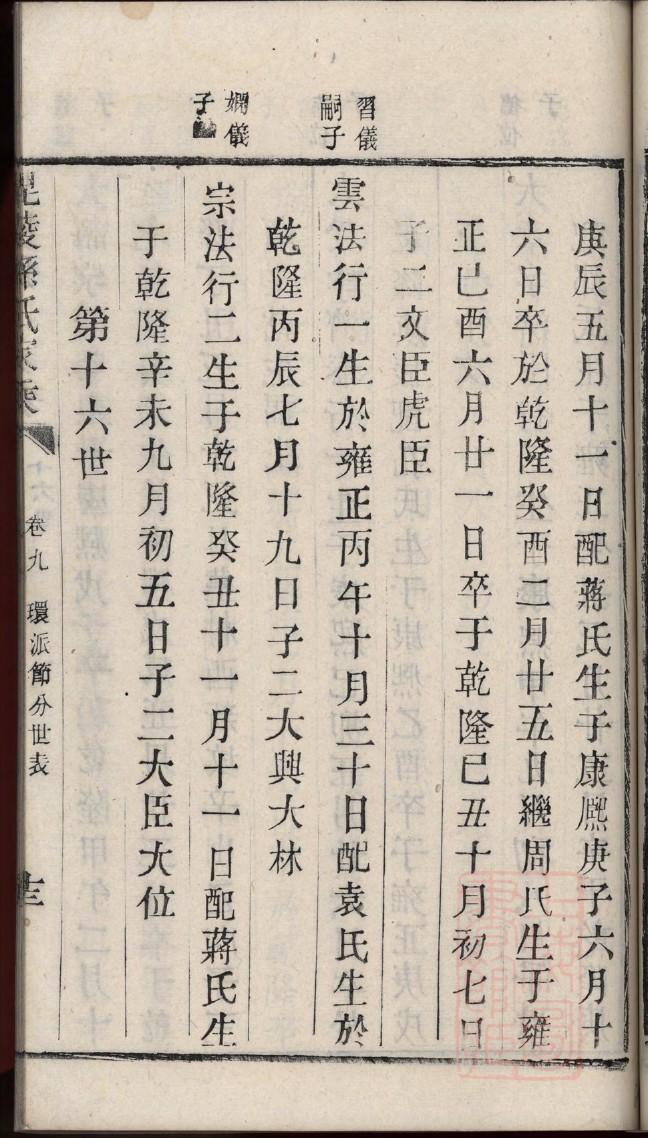 庚辰五月十一日配蔣氏生于康熈庚子六月十
六日卒於乾隆癸酉二月廿五日繼周氏生于雍
正己酉六月廿一日卒于乾隆己丑十月初七日
子二文臣虎臣
習儀
嗣子
雲法行一生於雍正丙午十月三十日配袁氏生於
乾隆丙辰七月十九日子二大興大林
嫻儀
子
宗法行二生于乾隆癸丑十一月十一日配蔣氏生
于乾隆辛未九月初五日子二大臣大位
第十六世
毘陵孫氏家乘
卷九
環派節分世表